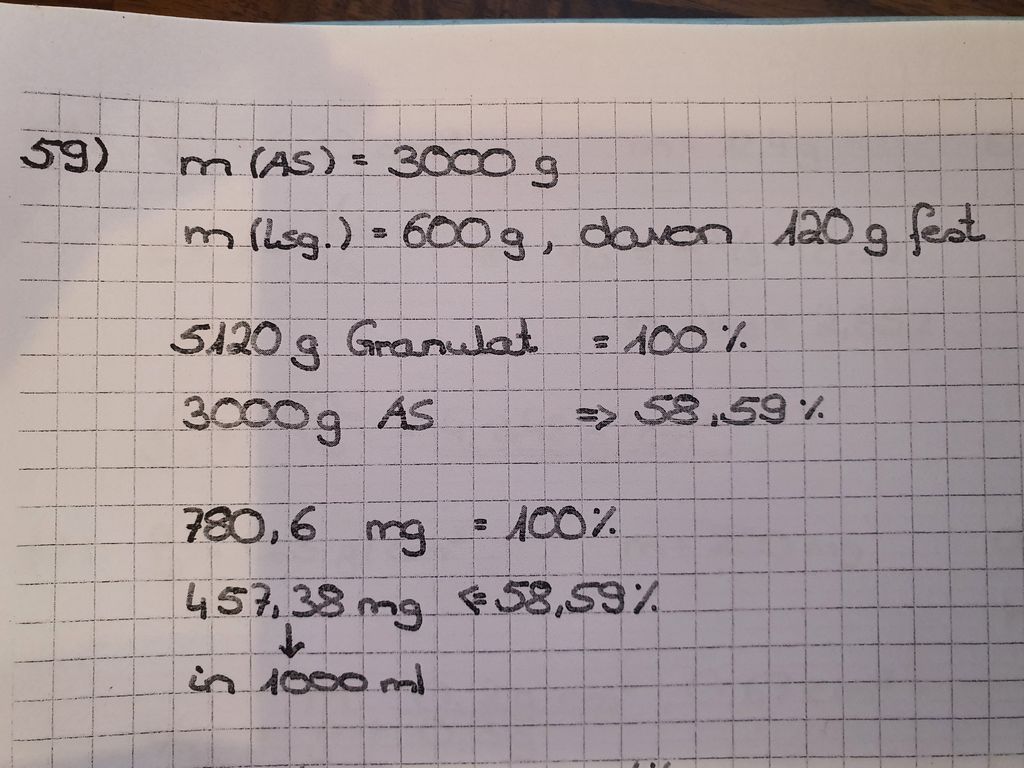 59) m (AS) = 3000 g
m (Lsg.) = 600 g, davon 120 g fest
5120 g Granulat = 100 %
3000 g AS => 58,59 %
780,6 mg = 100 %
457,38 mg <= 58,59 %
↓
in 1000 ml